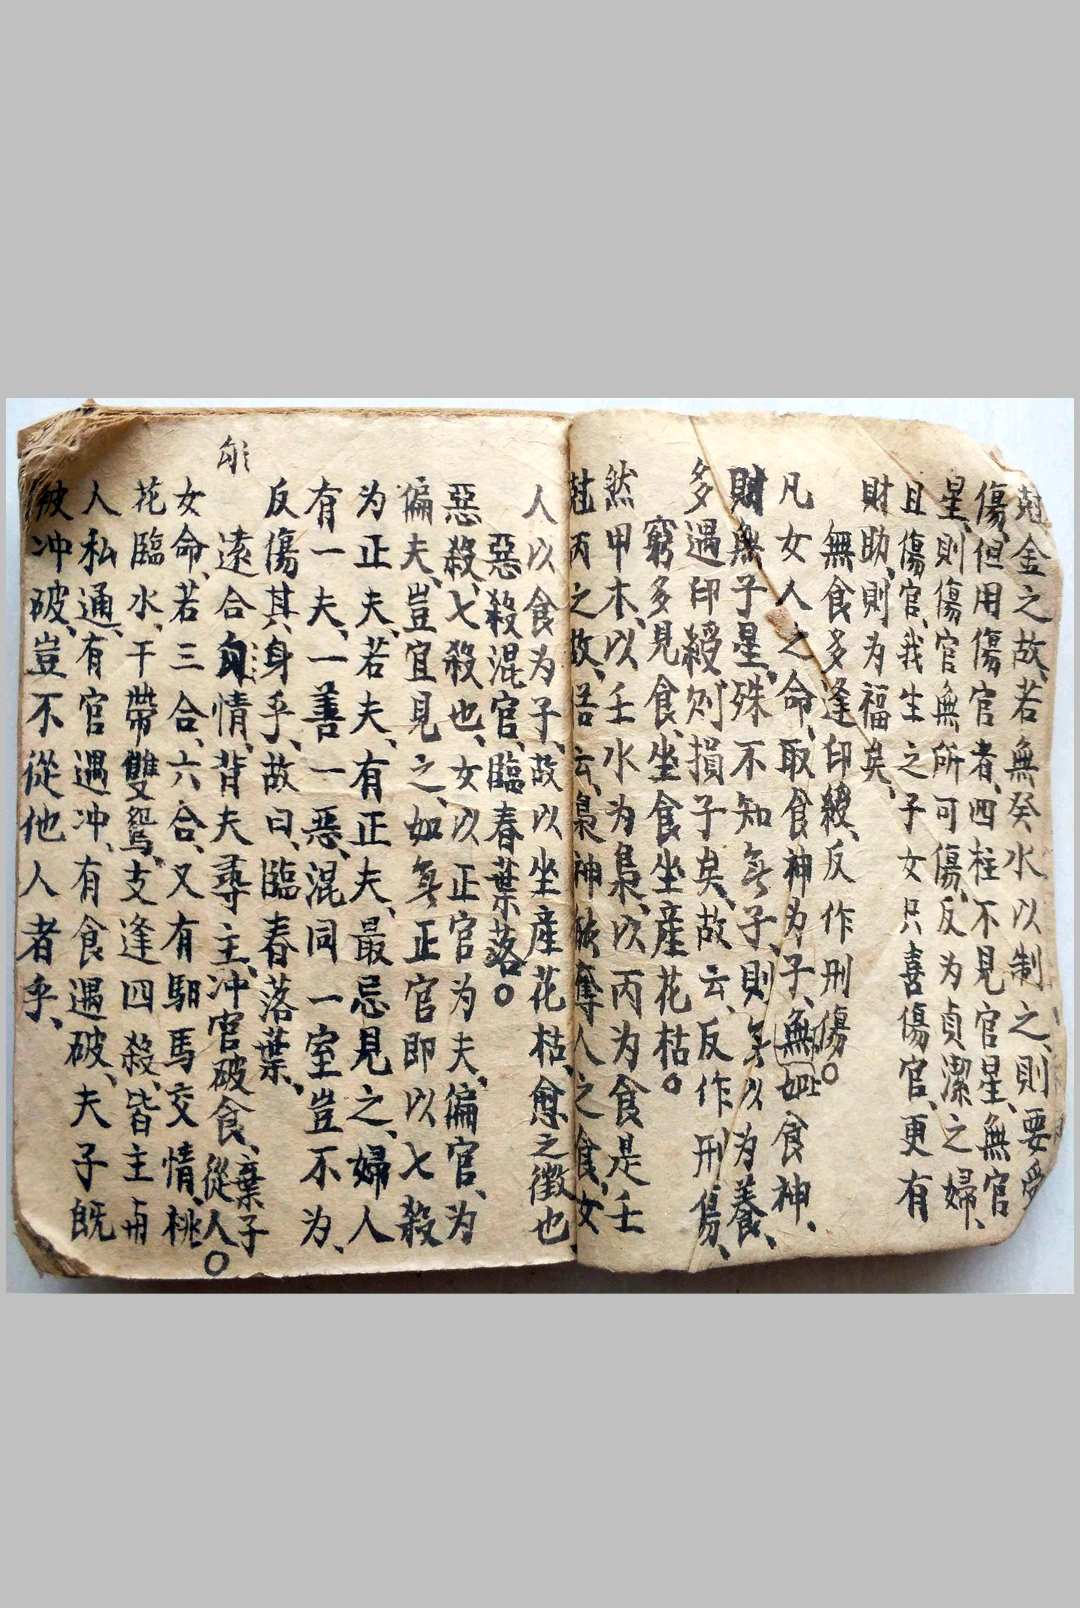 尅金之故、若無癸水以制之、則要受
傷、但用傷官者、四柱不見官星、無官
星、則傷官無所可傷、反为貞潔之婦、
且傷官、我生之子女只喜傷官、更有
財助、則为福矣、
無食多逢印綬、反作刑傷○
凡女人之命、取食神为子、無食神、
財無子星、殊不知無子、則無以为養、
多遇印綬則損子矣、故云、反作刑傷、
窮多見食、坐食坐産花枯○
然甲木、以壬水为梟、以丙为食是壬
尅丙之故、梟神能奪人之食、女
人以食为子、故以坐産花枯、愈之徵也
惡殺混官、臨春葉落○
惡殺、七殺也、女以正官为夫、偏官、为
偏夫、豈宜見之、如無正官即以七殺
为正夫、若夫、有正夫、最忌見之、婦人
有一夫、一善一惡、混同一室豈不为、
反傷其身乎、故曰、臨春落葉、
遠合情、背夫尋主、冲官破食、棄子從人○
女命、若三合、六合、又有馹馬交情、桃
花臨水、干帶雙鴛、支逢四殺、皆主与
人私通、有官遇冲、有食遇破、夫子既
被冲破、豈不從他人者乎、